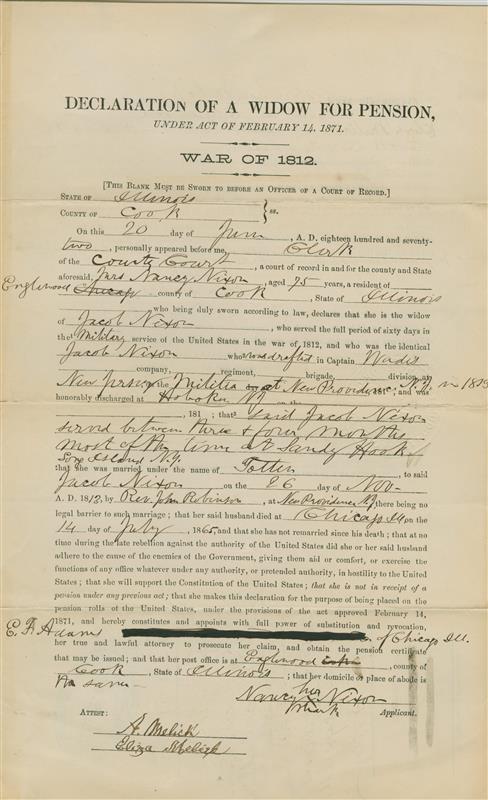 DECLARATION OF A WIDOW FOR PENSION,
UNDER ACT OF FEBRUARY 14, 1871.
WAR OF 1812.
[THIS BLANK MUST BE SWORN TO BEFORE AN OFFICER OF A COURT OF RECORD.]
STATE OF Illinois
COUNTY OF Cook } ss.
On this 20 day of June, A. D. eighteen hundred and seventy-
two, personally appeared before me, Clerk
of the County Court, a court of record in and for the county and State
aforesaid, Mrs Nancy Nixon, aged 75 years, a resident of
Englewood Chicago county of Cook, State of Illinois
who being duly sworn according to law, declares that she is the widow
of Jacob Nixon, who served the full period of sixty days in
the Military service of the United States in the war of 1812, and who was the identical
Jacob Nixon who was drafted in Captain
company, regiment, brigade, division, at
New Jersey the Militia at New Providence, N.J. in 1813 ; and was
honorably discharged at Hoboken NJ on the
, 181 ; that said Jacob Nixon
served between three & four months
most of the time at Sandy Hook
Long Island N.Y.
that she was married under the name of Totten, to said
Jacob Nixon on the 26 day of Nov-
A. D. 1812, by Rev. John Robinson, at New Providence NJ there being no
legal barrier to such marriage; that her said husband died at Chicago Ills on the
14 day of July, 1865, and that she has not remarried since his death; that at no
time during the late rebellion against the authority of the United States did she or her said husband
adhere to the cause of the enemies of the Government, giving them aid or comfort, or exercise the
functions of any office whatever under any authority, or pretended authority, in hostility to the United
States; that she will support the Constitution of the United States; that she is not in receipt of a
pension under any previous act; that she makes this declaration for the purpose of being placed on the
pension rolls of the United States, under the provisions of the act approved February 14,
1871, and hereby constitutes and appoints with full power of substitution and revocation,
E. F. Adams of Chicago Ill.
her true and lawful attorney to prosecute her claim, and obtain the pension certificate
that may be issued; and that her post office is at Englewood, county of
Cook, State of Illinois; that her domicile or place of abode is
the same
Nancy her Nixon
mark Applicant.
ATTEST:
A. Melick
Eliza Melick